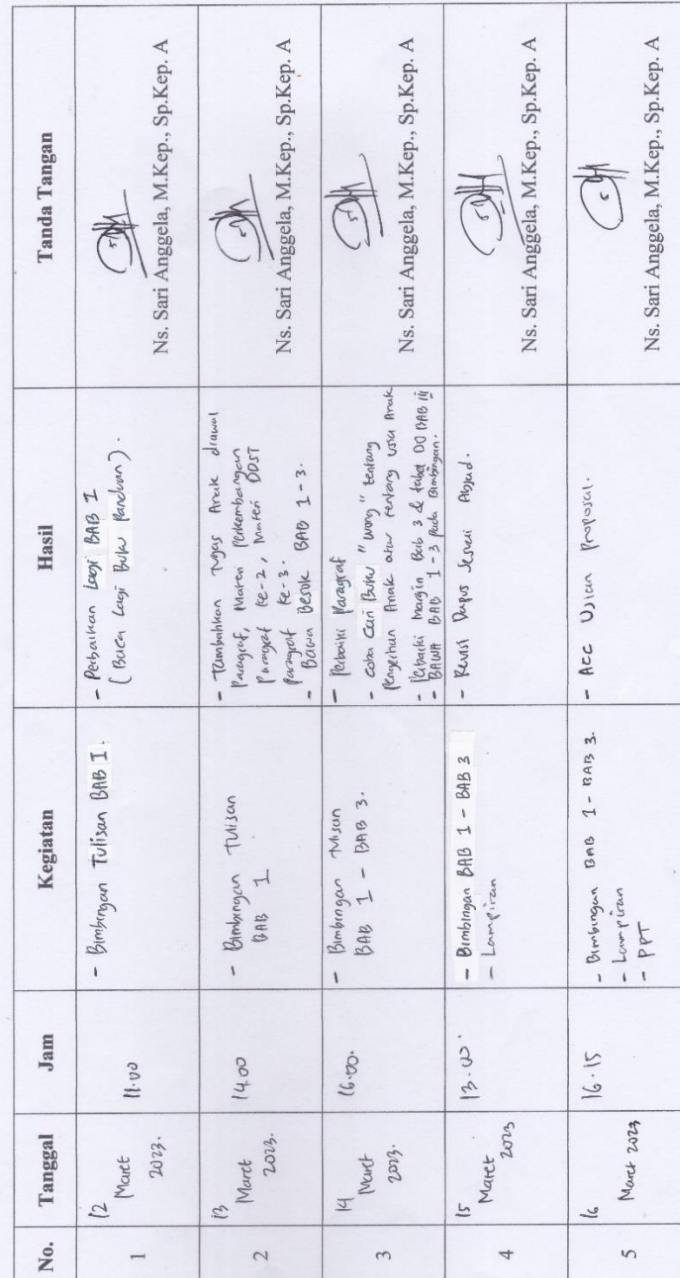 No. Tanggal Jam Kegiatan Hasil Tanda Tangan
1
12
Maret
2023.
11.00
- Bimbingan Tulisan BAB I.
- Perbaikan Lagi BAB I
(Baca Lagi Buku Panduan).
Ns. Sari Anggela, M.Kep., Sp.Kep. A
2
13
Maret
2023.
14.00
- Bimbingan Tulisan
BAB 1
- Tambahkan Tugas Anak diawal
Paragraf, Materi Perkembangan
Paragraf ke-2, Materi DDST
Paragraf ke-3.
- Bawa Besok BAB 1-3.
Ns. Sari Anggela, M.Kep., Sp.Kep. A
3
14
Maret
2023.
16.00.
- Bimbingan Tulisan
BAB 1 - BAB 3.
- Perbaiki Paragraf
- Coba Cari Buku "wong" tentang
Pengertian Anak atau rentang usia Anak
- Perbaiki Margin Bab 3 & tabel DO BAB III
- BAWA BAB 1-3 Pada Bimbingan.
Ns. Sari Anggela, M.Kep., Sp.Kep. A
4
15
Maret
2023
13.00
- Bimbingan BAB 1 - BAB 3
- Lampiran
- Revisi Dapus Sesuai Abjad.
Ns. Sari Anggela, M.Kep., Sp.Kep. A
5
16
Maret 2023
16.15
- Bimbingan BAB 1 - BAB 3.
- Lampiran
- PPT
- Acc Ujian Proposal.
Ns. Sari Anggela, M.Kep., Sp.Kep. A